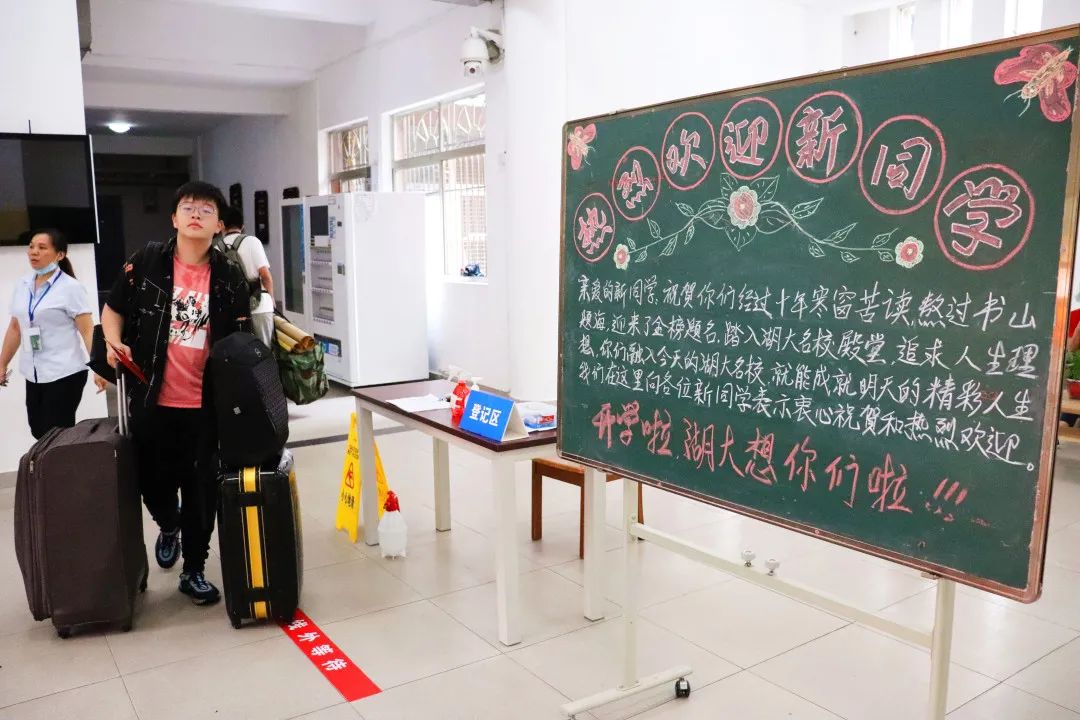 热烈欢迎新同学
亲爱的新同学,祝贺你们经过十年寒窗苦读,熬过书山
题海,迎来了金榜题名,踏入湖大名校殿堂,追求人生理
想,你们融入今天的湖大名校,就能成就明天的精彩人生
我们在这里向各位新同学表示衷心祝贺和热烈欢迎。
开学啦,湖大想你们啦!!!
登记区
线外等待